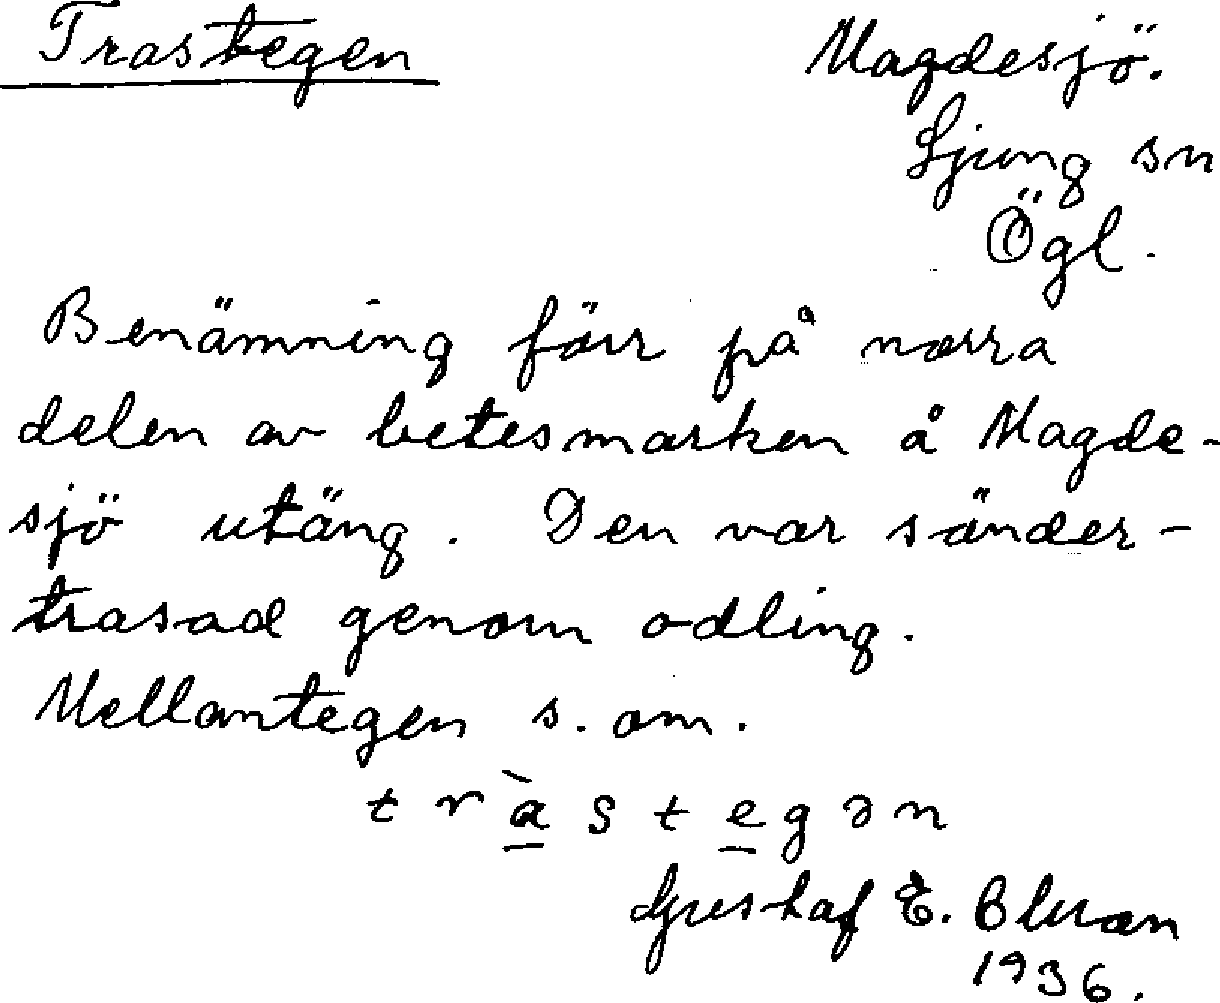 Trastegen
Magdesjö.
Ljung sn
Ögl.
Benämning förr på norra
delen av betesmarken å Magde-
sjö utäng. Den var sönder-
trasad genom odling.
Mellantegen s. om.
t r à s t e g ə n
Gustaf E. Bluom
1936.